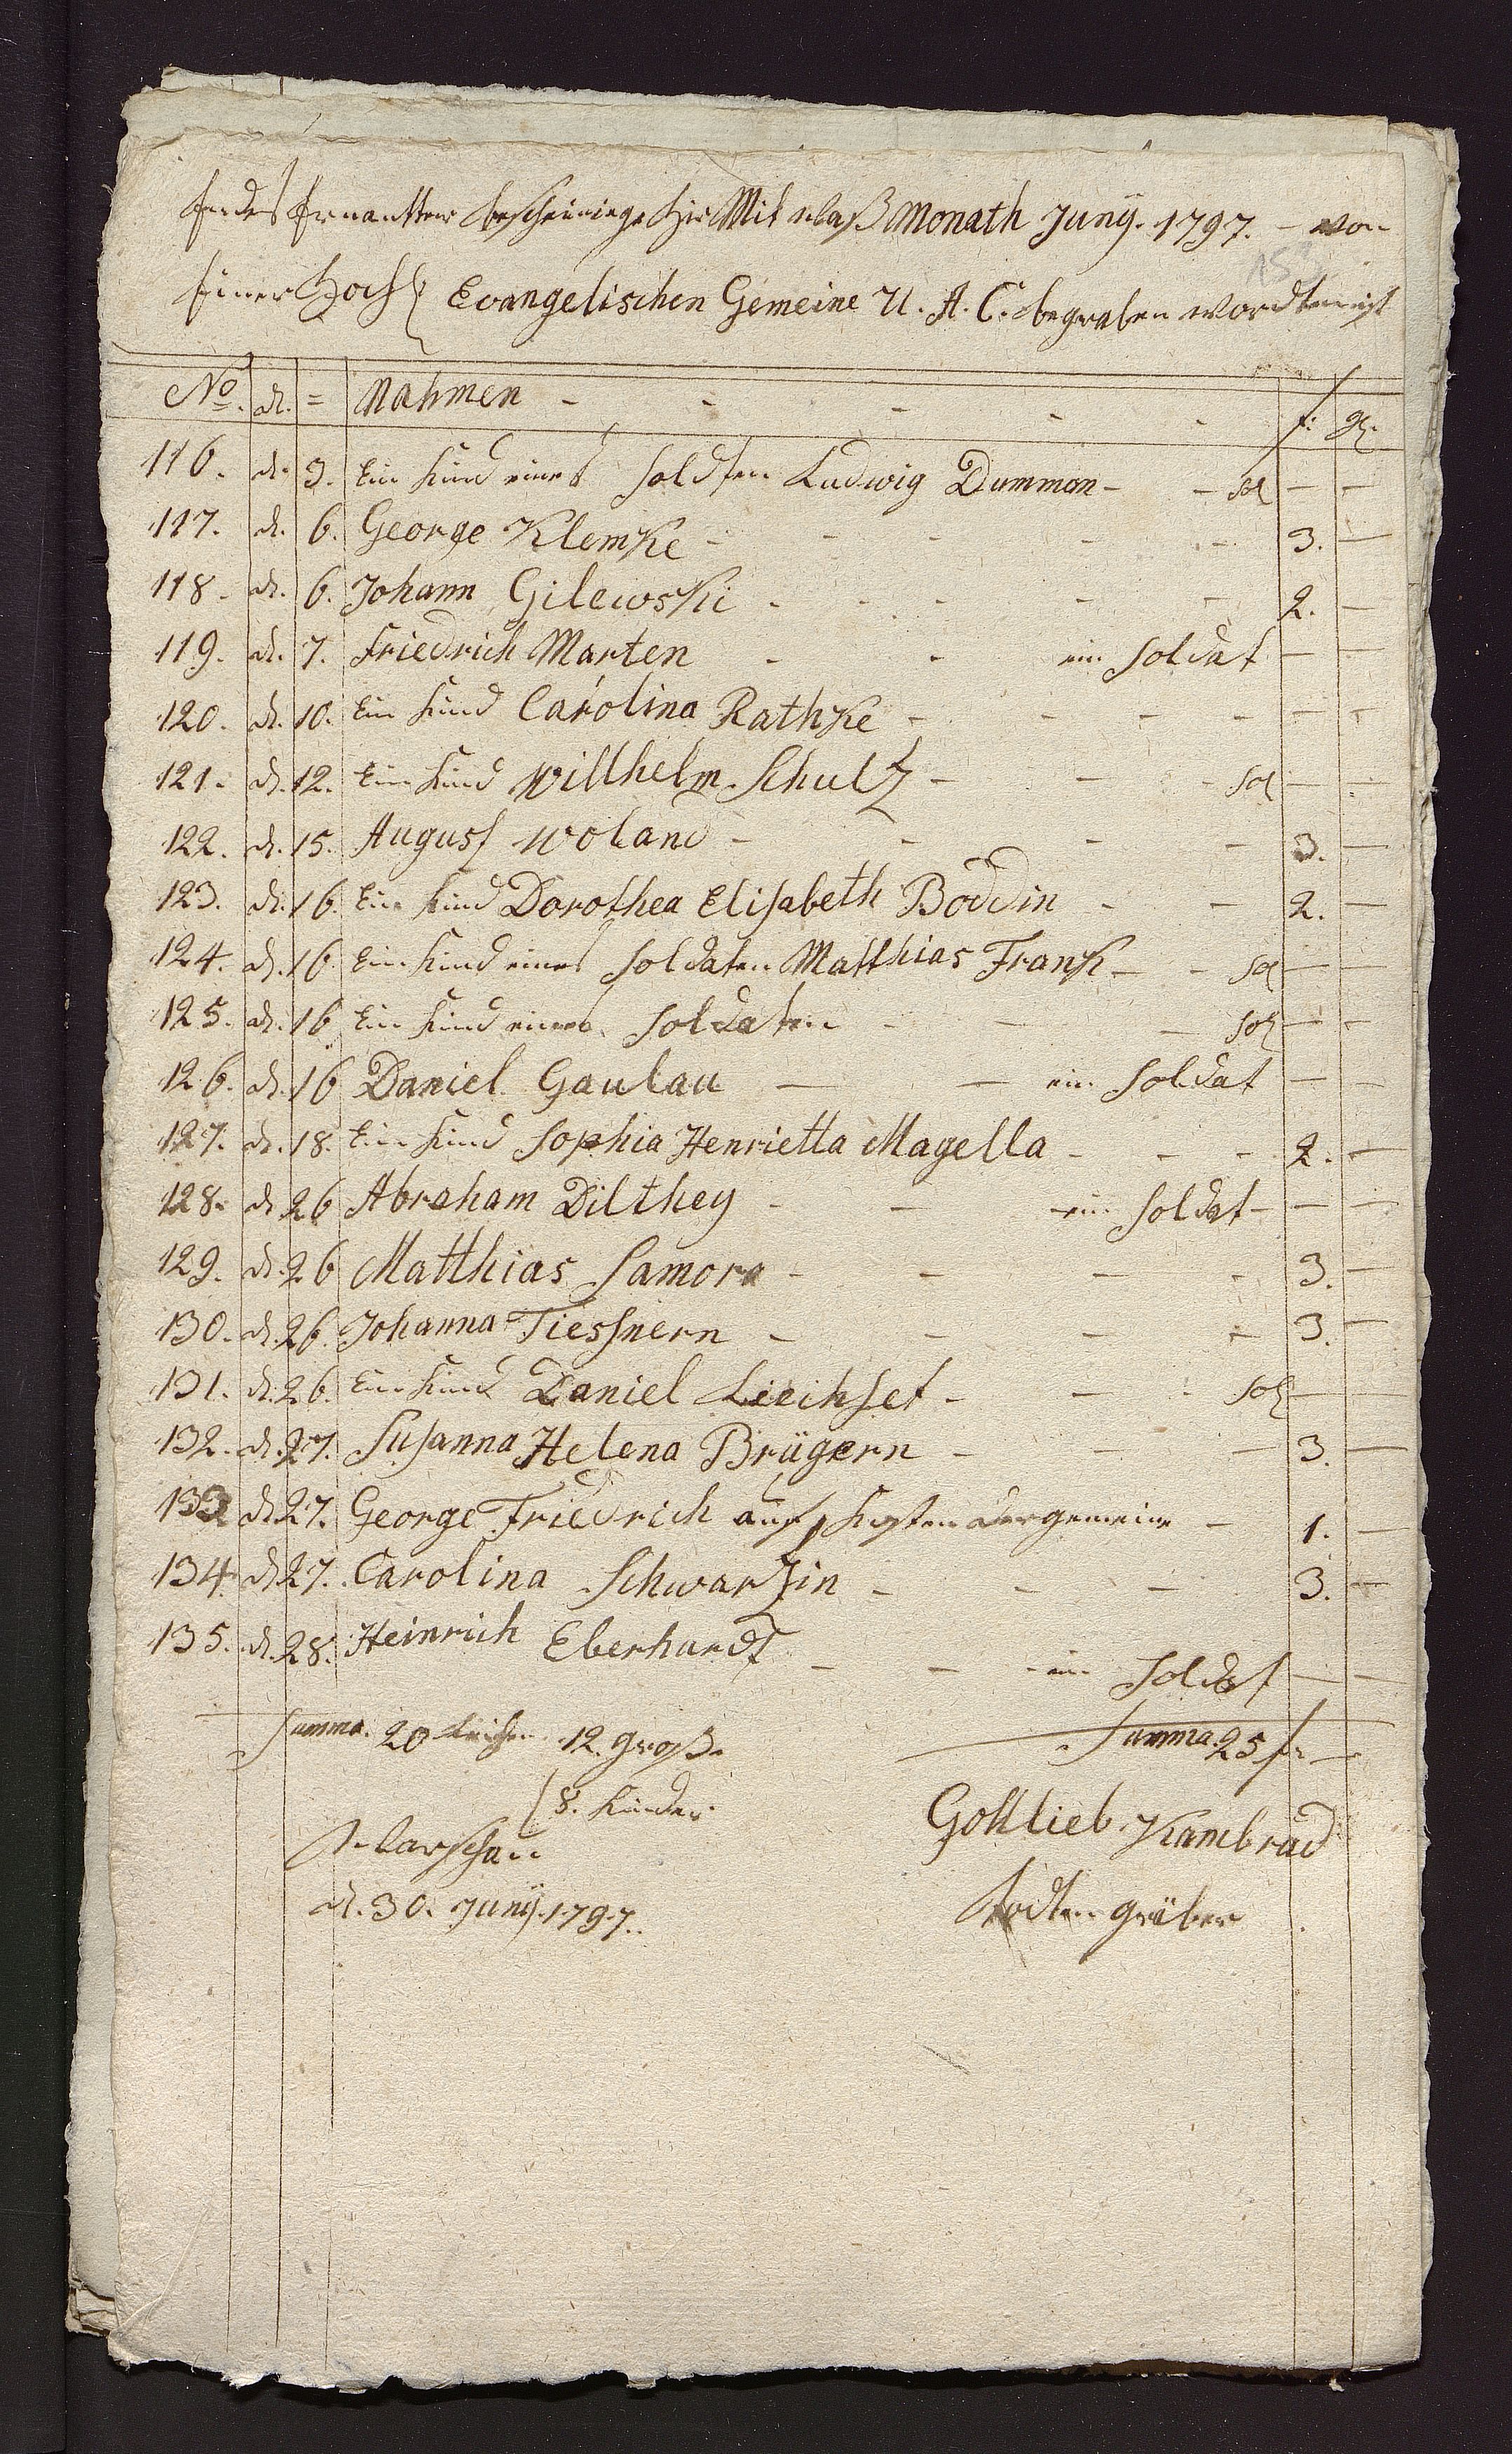 Endes Ernantter bescheinige hie Mit daß Monath Juny. 1797. - von
Einer Hochl Evangelischen Gemeine U. A. C. begraben wordten ist
No. d. = Nahmen - - - - - f: gr.
116. d. 3. Ein Kind eines Soldten Ludwig Dumman - - Sol - -
117. d. 6. George Klemke - - - - - 3. -
118. d. 6. Johann Gilewski - - - - - 2. -
119. d. 7. Friedrich Marten - - ein Soldat - -
120. d. 10. Ein Kind Carolina Rathke - - - - - -
121. d. 12. Ein Kind Willhelm Schultz - - - Sol - -
122. d. 15. August Woland - - - - 3. -
123. d. 16. Ein Kind Dorothea Elisabeth Boddin - - 2. -
124. d. 16 Ein Kind eines Soldaten Matthias Frank - - Sol - -
125. d. 16 Ein Kind eines Soldaten - - - Sol - -
126. d. 16 Daniel Gaulau - - ein Soldat - -
127. d. 18. Ein Kind Sophia Henrietta Magella - - - 2. -
128. d. 26 Abraham Dilthey - - - ein Soldat - - -
129. d. 26 Matthias Samora - - - - 3. -
130. d. 26. Johanna Tiessnern - - - - 3. -
131. d. 26. Ein Kind Daniel Liechset - - - Sol - -
132. d. 27. Susanna Helena Brügern - - - 3. -
133 d. 27. George Friedrich auf Kosten der gemeine - 1. -
134. d. 27. Carolina Schwartzin - - - 3. -
135. d. 28. Heinrich Eberhardt - - - ein Soldat - -
Summa. 20 Leichen 12. Groß. Summa. 25 f. -
8. Kinder.
Gottlieb Kambrad
Warschau
d. 30. Juny. 1797. Todten gräber